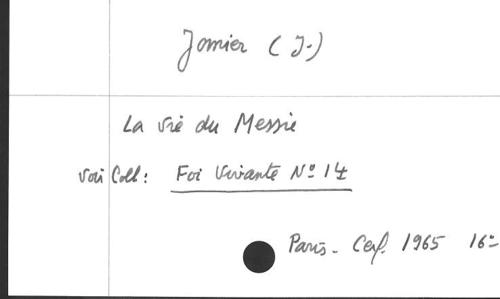 Jomier (J.)
La vie du Messie
voir Coll: Foi Vivante Nº 14
Paris - Cerf. 1965 16º